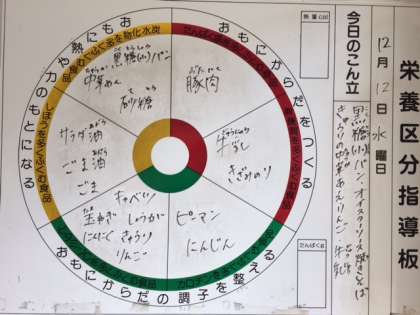 栄養区分指導板
12月12日水曜日
今日のこん立
黒糖(小)パン オイスターソース焼きそば
きゅうりの中華あえ りんご 牛乳
熱量(cal)
たんぱく(g)
おもにからだをつくる
おもにからだの調子を整える
おもに熱や力のもとになる
黒糖(小)パン
中華めん
砂糖
豚肉
牛乳
きざみのり
サラダ油
ごま油
ごま
キャベツ
玉ねぎ しょうが
にんにく きゅうり
りんご
ピーマン
にんじん